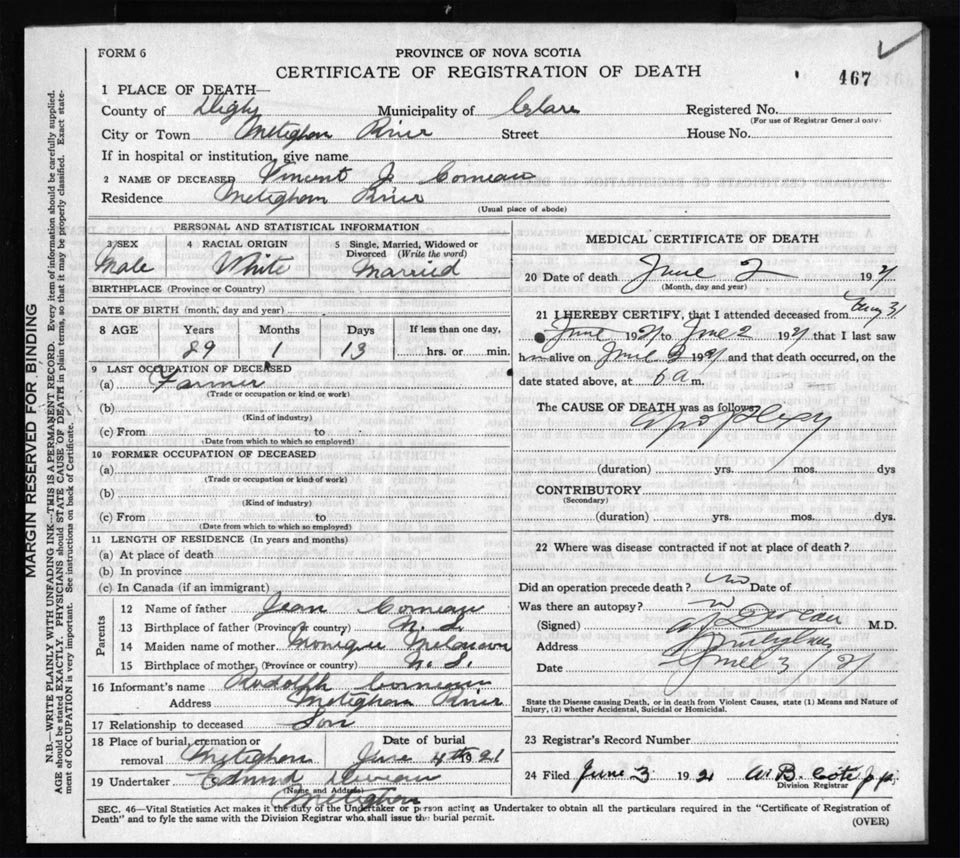 FORM 6
PROVINCE OF NOVA SCOTIA
CERTIFICATE OF REGISTRATION OF DEATH
467
1 PLACE OF DEATH—
County of Digby Municipality of Clare Registered No.
(For use of Registrar General only)
City or Town Meteghan River Street House No.
If in hospital or institution, give name
2 NAME OF DECEASED Vincent J. Comeau
Residence Meteghan River
(Usual place of abode)
PERSONAL AND STATISTICAL INFORMATION
3 SEX 4 RACIAL ORIGIN 5 Single, Married, Widowed or Divorced (Write the word)
Male White Married
BIRTHPLACE (Province or Country)
DATE OF BIRTH (month, day and year)
8 AGE Years Months Days If less than one day,
89 1 13 hrs. or min.
9 LAST OCCUPATION OF DECEASED
(a) Farmer
(Trade or occupation or kind or work)
(b)
(Kind of industry)
(c) From to
(Date from which to which so employed)
10 FORMER OCCUPATION OF DECEASED
(a)
(Trade or occupation or kind of work)
(b)
(Kind of industry)
(c) From to
(Date from which to which so employed)
11 LENGTH OF RESIDENCE (In years and months)
(a) At place of death
(b) In province
(c) In Canada (if an immigrant)
Parents
12 Name of father Jean Comeau
13 Birthplace of father (Province or country) N. S.
14 Maiden name of mother Monique Melanson
15 Birthplace of mother (Province or country) N. S.
16 Informant's name Rudolph Comeau
Address Meteghan River
17 Relationship to deceased Son
18 Place of burial, cremation or removal Meteghan Date of burial June 4th 1921
19 Undertaker Edmund Deveau
(Name and Address)
Meteghan
MEDICAL CERTIFICATE OF DEATH
20 Date of death June 2 1921
(Month, day and year)
21 I HEREBY CERTIFY, that I attended deceased from
June 1921 to June 2 1921 that I last saw
him alive on June 2 1921 and that death occurred, on the
date stated above, at 6 a m.
The CAUSE OF DEATH was as follows:
Apoplexy
(duration) yrs. mos. dys
CONTRIBUTORY
(Secondary)
(duration) yrs. mos. dys.
22 Where was disease contracted if not at place of death?
Did an operation precede death? no Date of
Was there an autopsy? no
(Signed) M.D.
Address
Date June 3/21
State the Disease causing Death, or in death from Violent Causes, state (1) Means and Nature of
Injury, (2) whether Accidental, Suicidal or Homicidal.
23 Registrar's Record Number
24 Filed June 3 1921 W. B. Cote J.P.
Division Registrar
SEC. 46—Vital Statistics Act makes it the duty of the Undertaker or person acting as Undertaker to obtain all the particulars required in the "Certificate of Registration of
Death" and to fyle the same with the Division Registrar who shall issue the burial permit.
(OVER)
MARGIN RESERVED FOR BINDING
N.B.—WRITE PLAINLY WITH UNFADING INK—THIS IS A PERMANENT RECORD. Every item of information should be carefully supplied.
AGE should be stated EXACTLY. PHYSICIANS should STATE CAUSE OF DEATH in plain terms, so that it may be properly classified. Exact statement of OCCUPATION is very important. See instructions on back of Certificate.